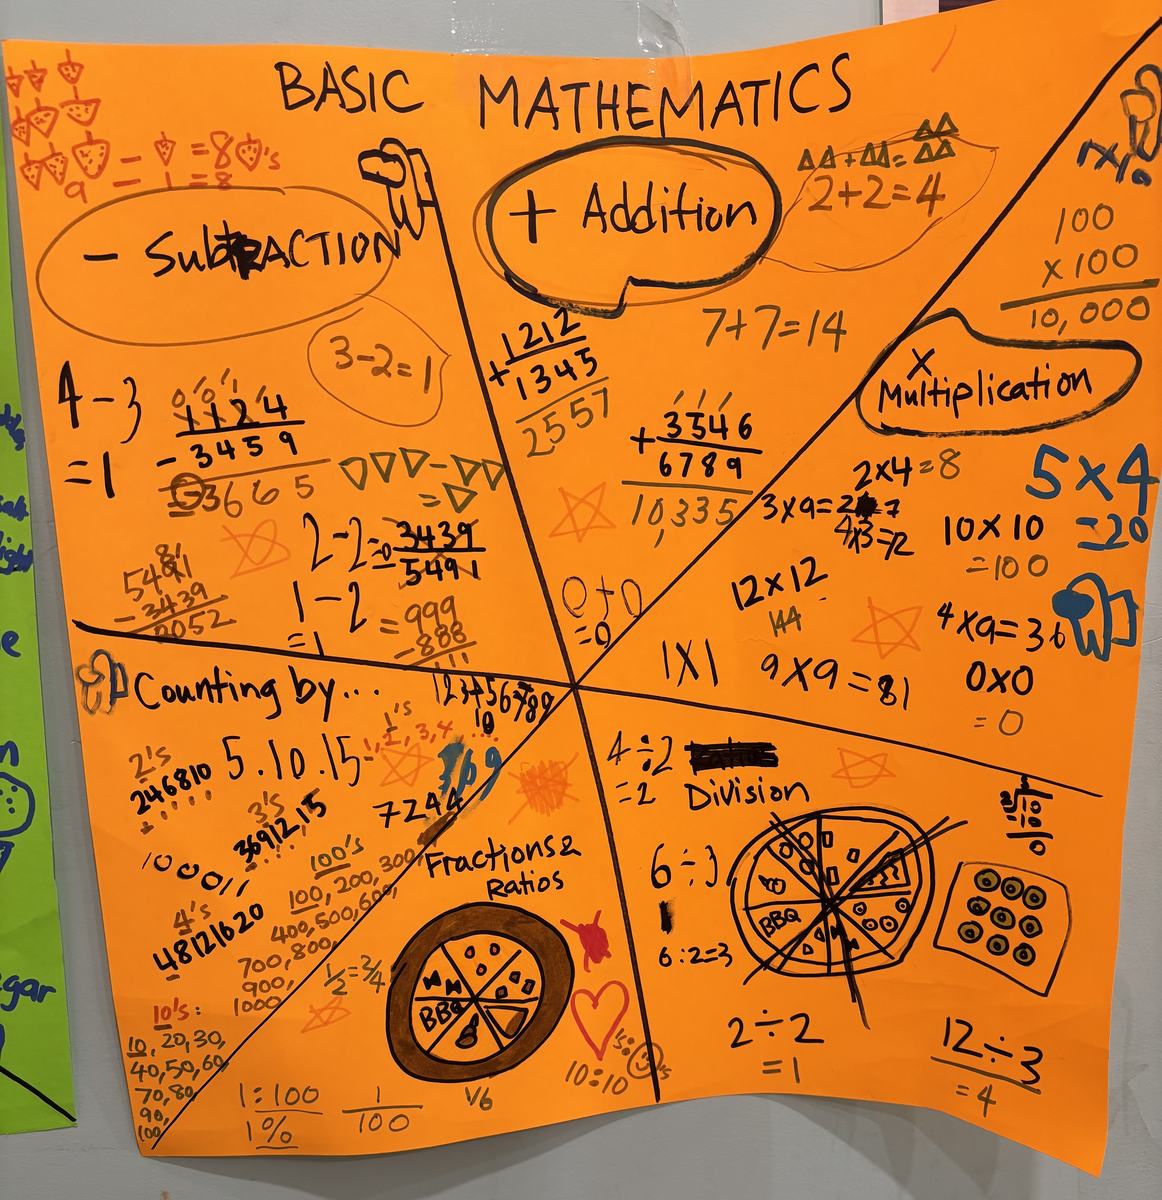 BASIC MATHEMATICS
9 - 1 = 8
= 8 's
- SubtRACTION
3-2=1
4-3
=1
1124
- 3459
3665
2-2=0
3439
5491
5491
- 3439
2052
1-2
=1
= 999
- 888
111
+ Addition
2+2=4
7+7=14
1212
+ 1345
2557
3546
+ 6789
10,335
0+0
=0
1x1
100
x 100
10,000
x
Multiplication
2x4=8
5x4
=20
3x9=2 7
4x3=12
10x10
=100
12x12
144
4x9=36
1x1
9x9=81
0x0
=0
Counting by...
123456789
10
1's
1,2,3,4...
2's
246810
5.10.15
3's
36912,15
369
7244
100's
100, 200, 300
400, 500, 600,
700, 800,
900,
1000
4's
48121620
10's:
10, 20, 30,
40, 50, 60
70, 80,
90,
100,
Fractions &
Ratios
1/2=2/4
BBQ
1:100
1%
1
100
1/6
10:10
4÷2
=2
Division
6÷3
6:2=3
BBQ
2÷2
=1
12÷3
=4